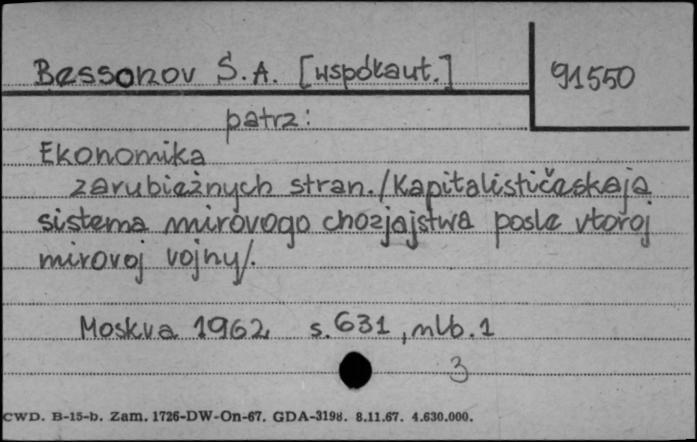 Bessonov S.A. [współaut.]
91550
patrz:
Ekonomika
zarubieżnych stran./Kapitalističeskaja
sistema mirovogo chozjajstwa posle vtoroj
mirovoj vojny/.
Moskva 1962 s. 631, nlb. 1
3
CWD. B-15-b. Zam. 1726-DW-On-67. GDA-3198. 8.11.67. 4.630.000.